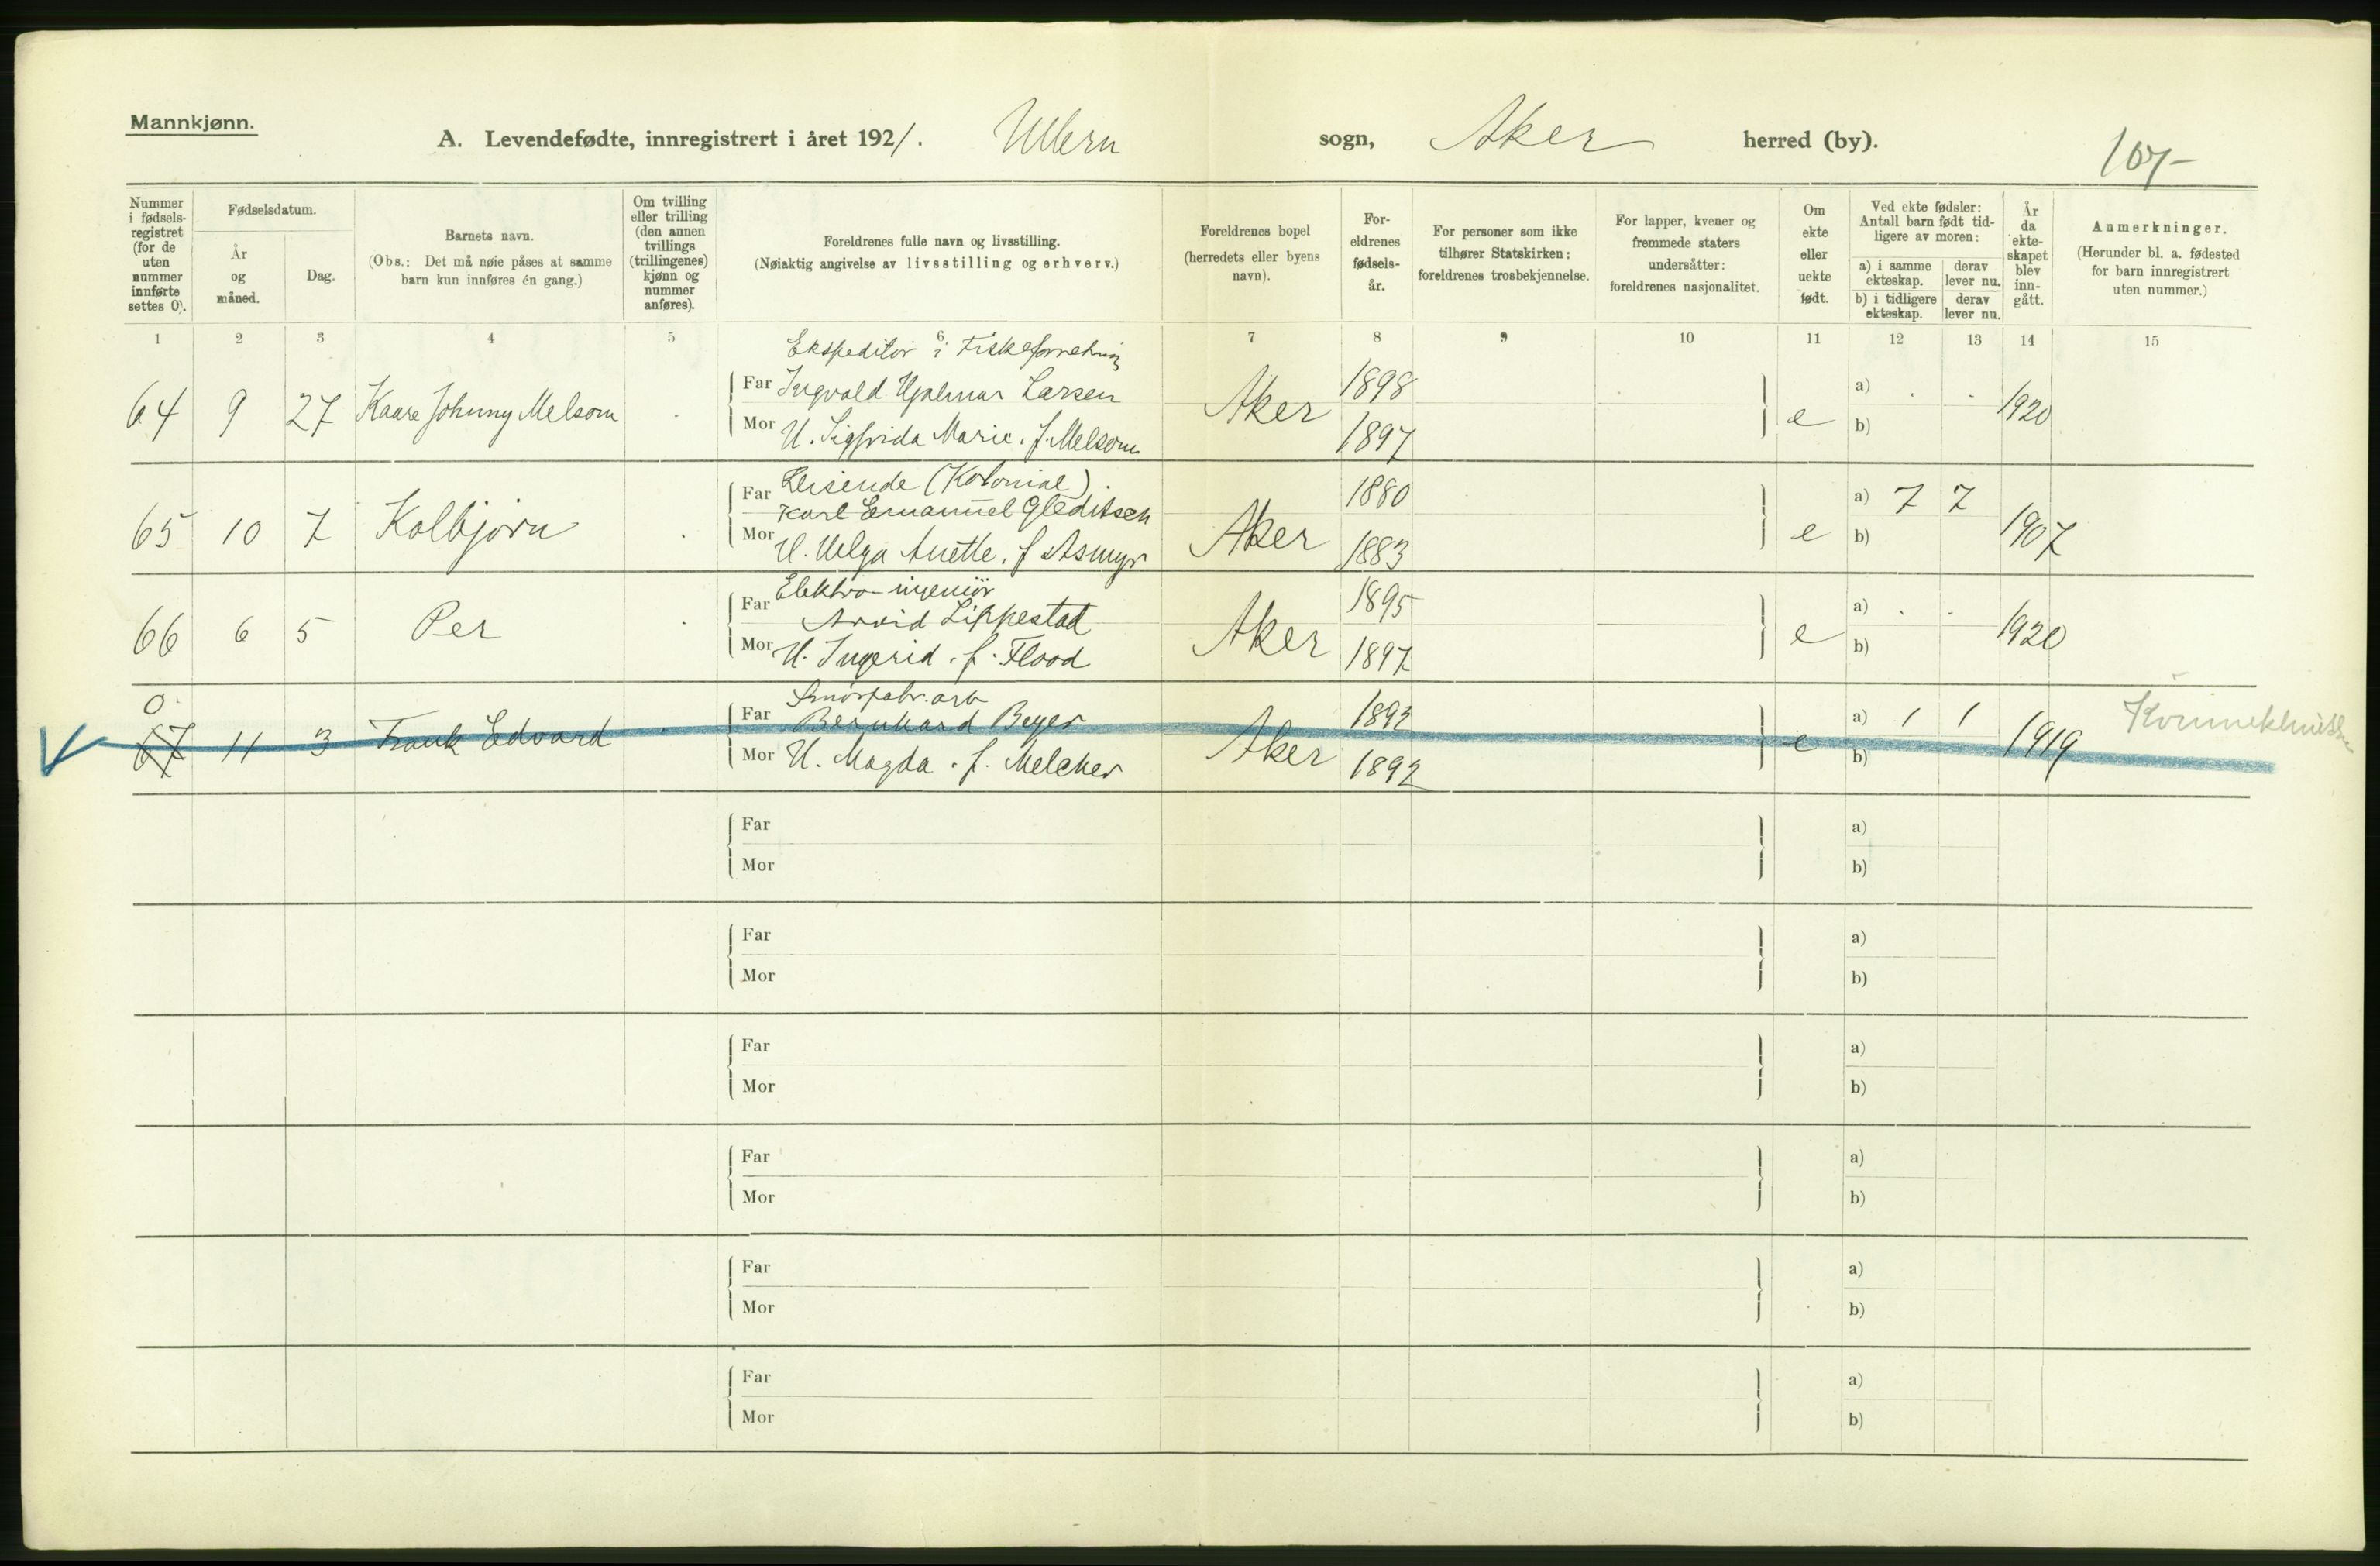 Mannkjønn.
A. Levendefødte, innregistrert i året 1921. Ullern sogn, Aker herred (by).
107-
Nummer i fødsels-registret (for de uten nummer innførte settes 0).
Fødselsdatum.
År og måned.
Dag.
Barnets navn.
(Obs.: Det må nøie påses at samme barn kun innføres én gang.)
Om tvilling eller trilling (den annen tvillings (trillingenes) kjønn og nummer anføres).
Foreldrenes fulle navn og livsstilling.
(Nøiaktig angivelse av livsstilling og erhverv.)
Foreldrenes bopel (herredets eller byens navn).
For-eldrenes fødsels-år.
For personer som ikke tilhører Statskirken: foreldrenes trosbekjennelse.
For lapper, kvener og fremmede staters undersåtter: foreldrenes nasjonalitet.
Om ekte eller uekte født.
Ved ekte fødsler: Antall barn født tid-ligere av moren:
a) i samme ekteskap. derav lever nu.
b) i tidligere ekteskap. derav lever nu.
År da ekte-skapet blev inn-gått.
Anmerkninger.
(Herunder bl. a. fødested for barn innregistrert uten nummer.)
1 2 3 4 5 6 7 8 9 10 11 12 13 14 15
Ekspeditør i Fiskeforretning
64 9 27 Kaare Johnny Melsom . Far Ingvald Hjalmar Larsen Aker 1898 e a) . . 1920
Mor H. Sigfrida Marie. f. Melsom 1897 b)
Reisende (Kolonial).
65 10 7 Kolbjørn . Far Karl Emanuel Gleditsch Aker 1880 e a) 7 7 1907
Mor H. Helga Anette. f Asmyr 1883 b)
Elektro-ingeniør
66 6 5 Per . Far Arvid Lippestad Aker 1895 e a) . . 1920
Mor H. Ingerid. f. Flood 1897 b)
0. Smørfabr. arb
67 11 3 Frank Edvard . Far Bernhard Beyer Aker 1893 e a) 1 1 1919
Mor H. Magda. f. Melcher 1892 b)
Far a)
Mor b)
Far a)
Mor b)
Far a)
Mor b)
Far a)
Mor b)
Far a)
Mor b)
Far a)
Mor b)